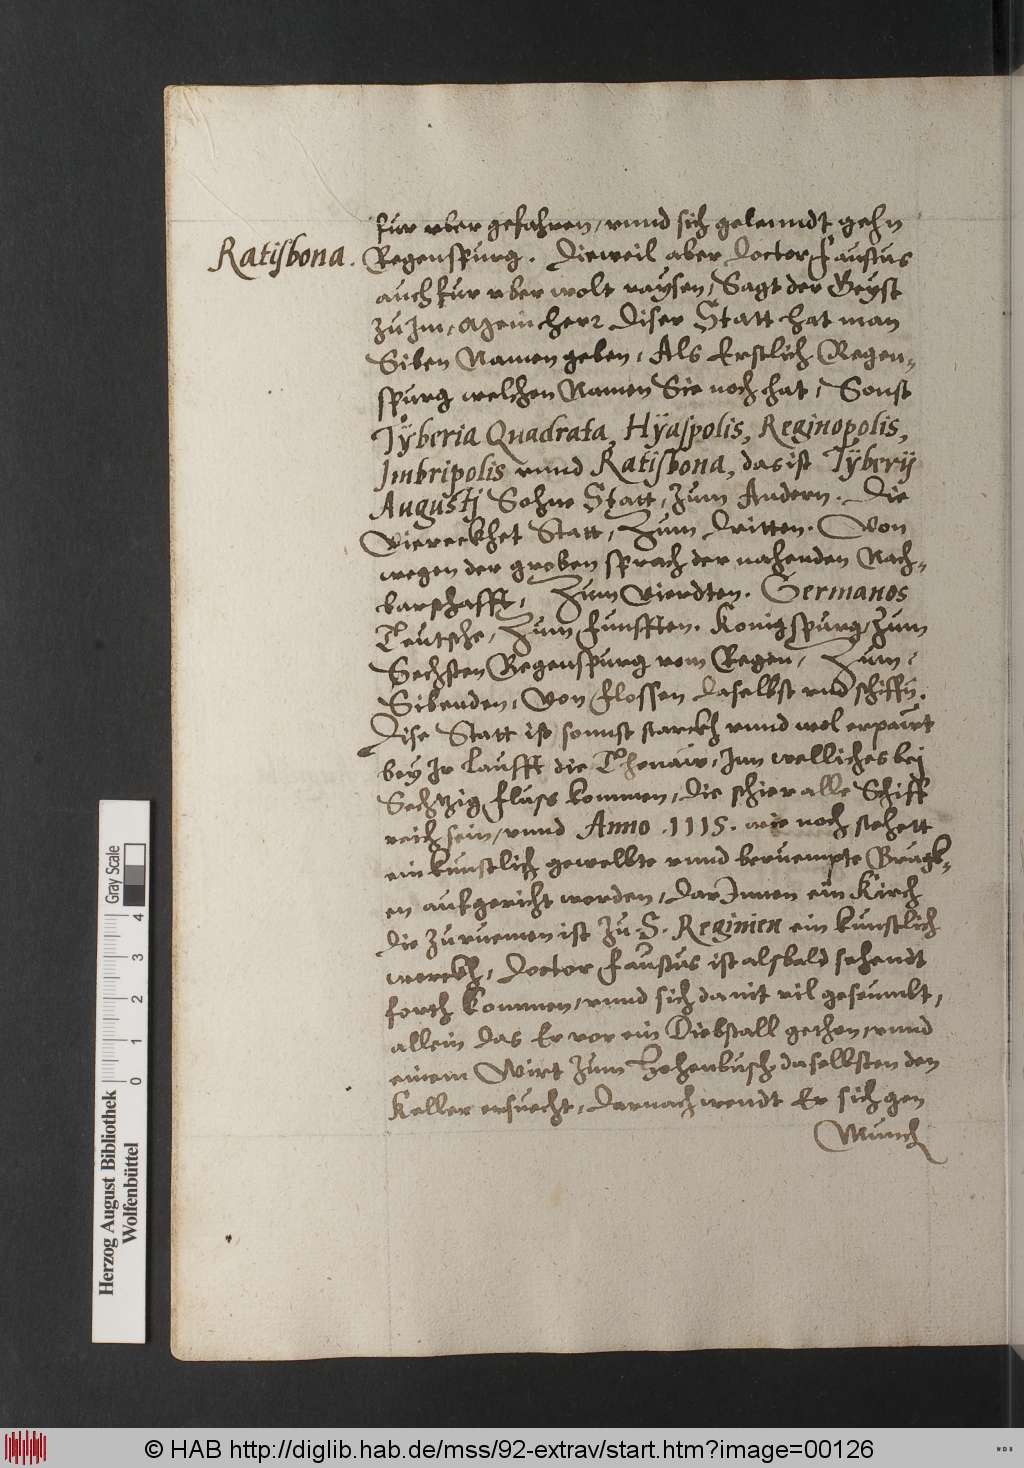 fur vber gefahren, vnnd sich gelenndt gehn
Ratisbona.
Regenspurg. Dieweil aber Doctor Faustus
auch fur vber wolt raysen, Sagt der Geyst
zu Im, Mein herr diser Statt hat man
Siben Namen geben, Als Erstlich Regen-
spurg welchen Namen Sie noch hat, Sonst
Tÿberia Quadrata, Hÿaspolis, Reginopolis,
Imbripolis vnnd Ratisbona, das ist Tÿberij
Augustj Sohne Statt, zum Andern. Die
Viereckhet Statt, Zum Dritten. Von
wegen der groben sprach der nahenden Nach-
barschafft, Zum Vierdten. Germanos
Teutsche, Zum funfften. Konigspurg, Zum
Sechsten Regenspurg vom Regen, Zum,
Sibenden, Von flossen daselbst vnd schiffn.
Dise Statt ist sonnst starckh vnnd wol erpaut
bey Ir laufft die Thonaw, Inn welliches bei
Sechtzig fluss kommen, die schier alle Schiff
reich sein, vnnd Anno .1115. wie noch stehett
ein kunstlich gewelbte vnnd beruempte Brugk-
en aufgericht worden, DarInnen ein Kirch
die zuruemen ist zu S. Reginien ein kunstlich
werckh, Doctor Faustus ist alsbald sehendt
forth kommen, vnnd sich da nit vil gesaumbt,
allein das Er vor ein Diebstall gethon, vnnd
einem Wirt zum Hohenbusch daselbsten den
Keller ersuecht, Darnach wendt Er sich gen
Munch
Herzog August Bibliothek
Wolfenbüttel
0 1 2 3 4
Gray Scale
© HAB http://diglib.hab.de/mss/92-extrav/start.htm?image=00126